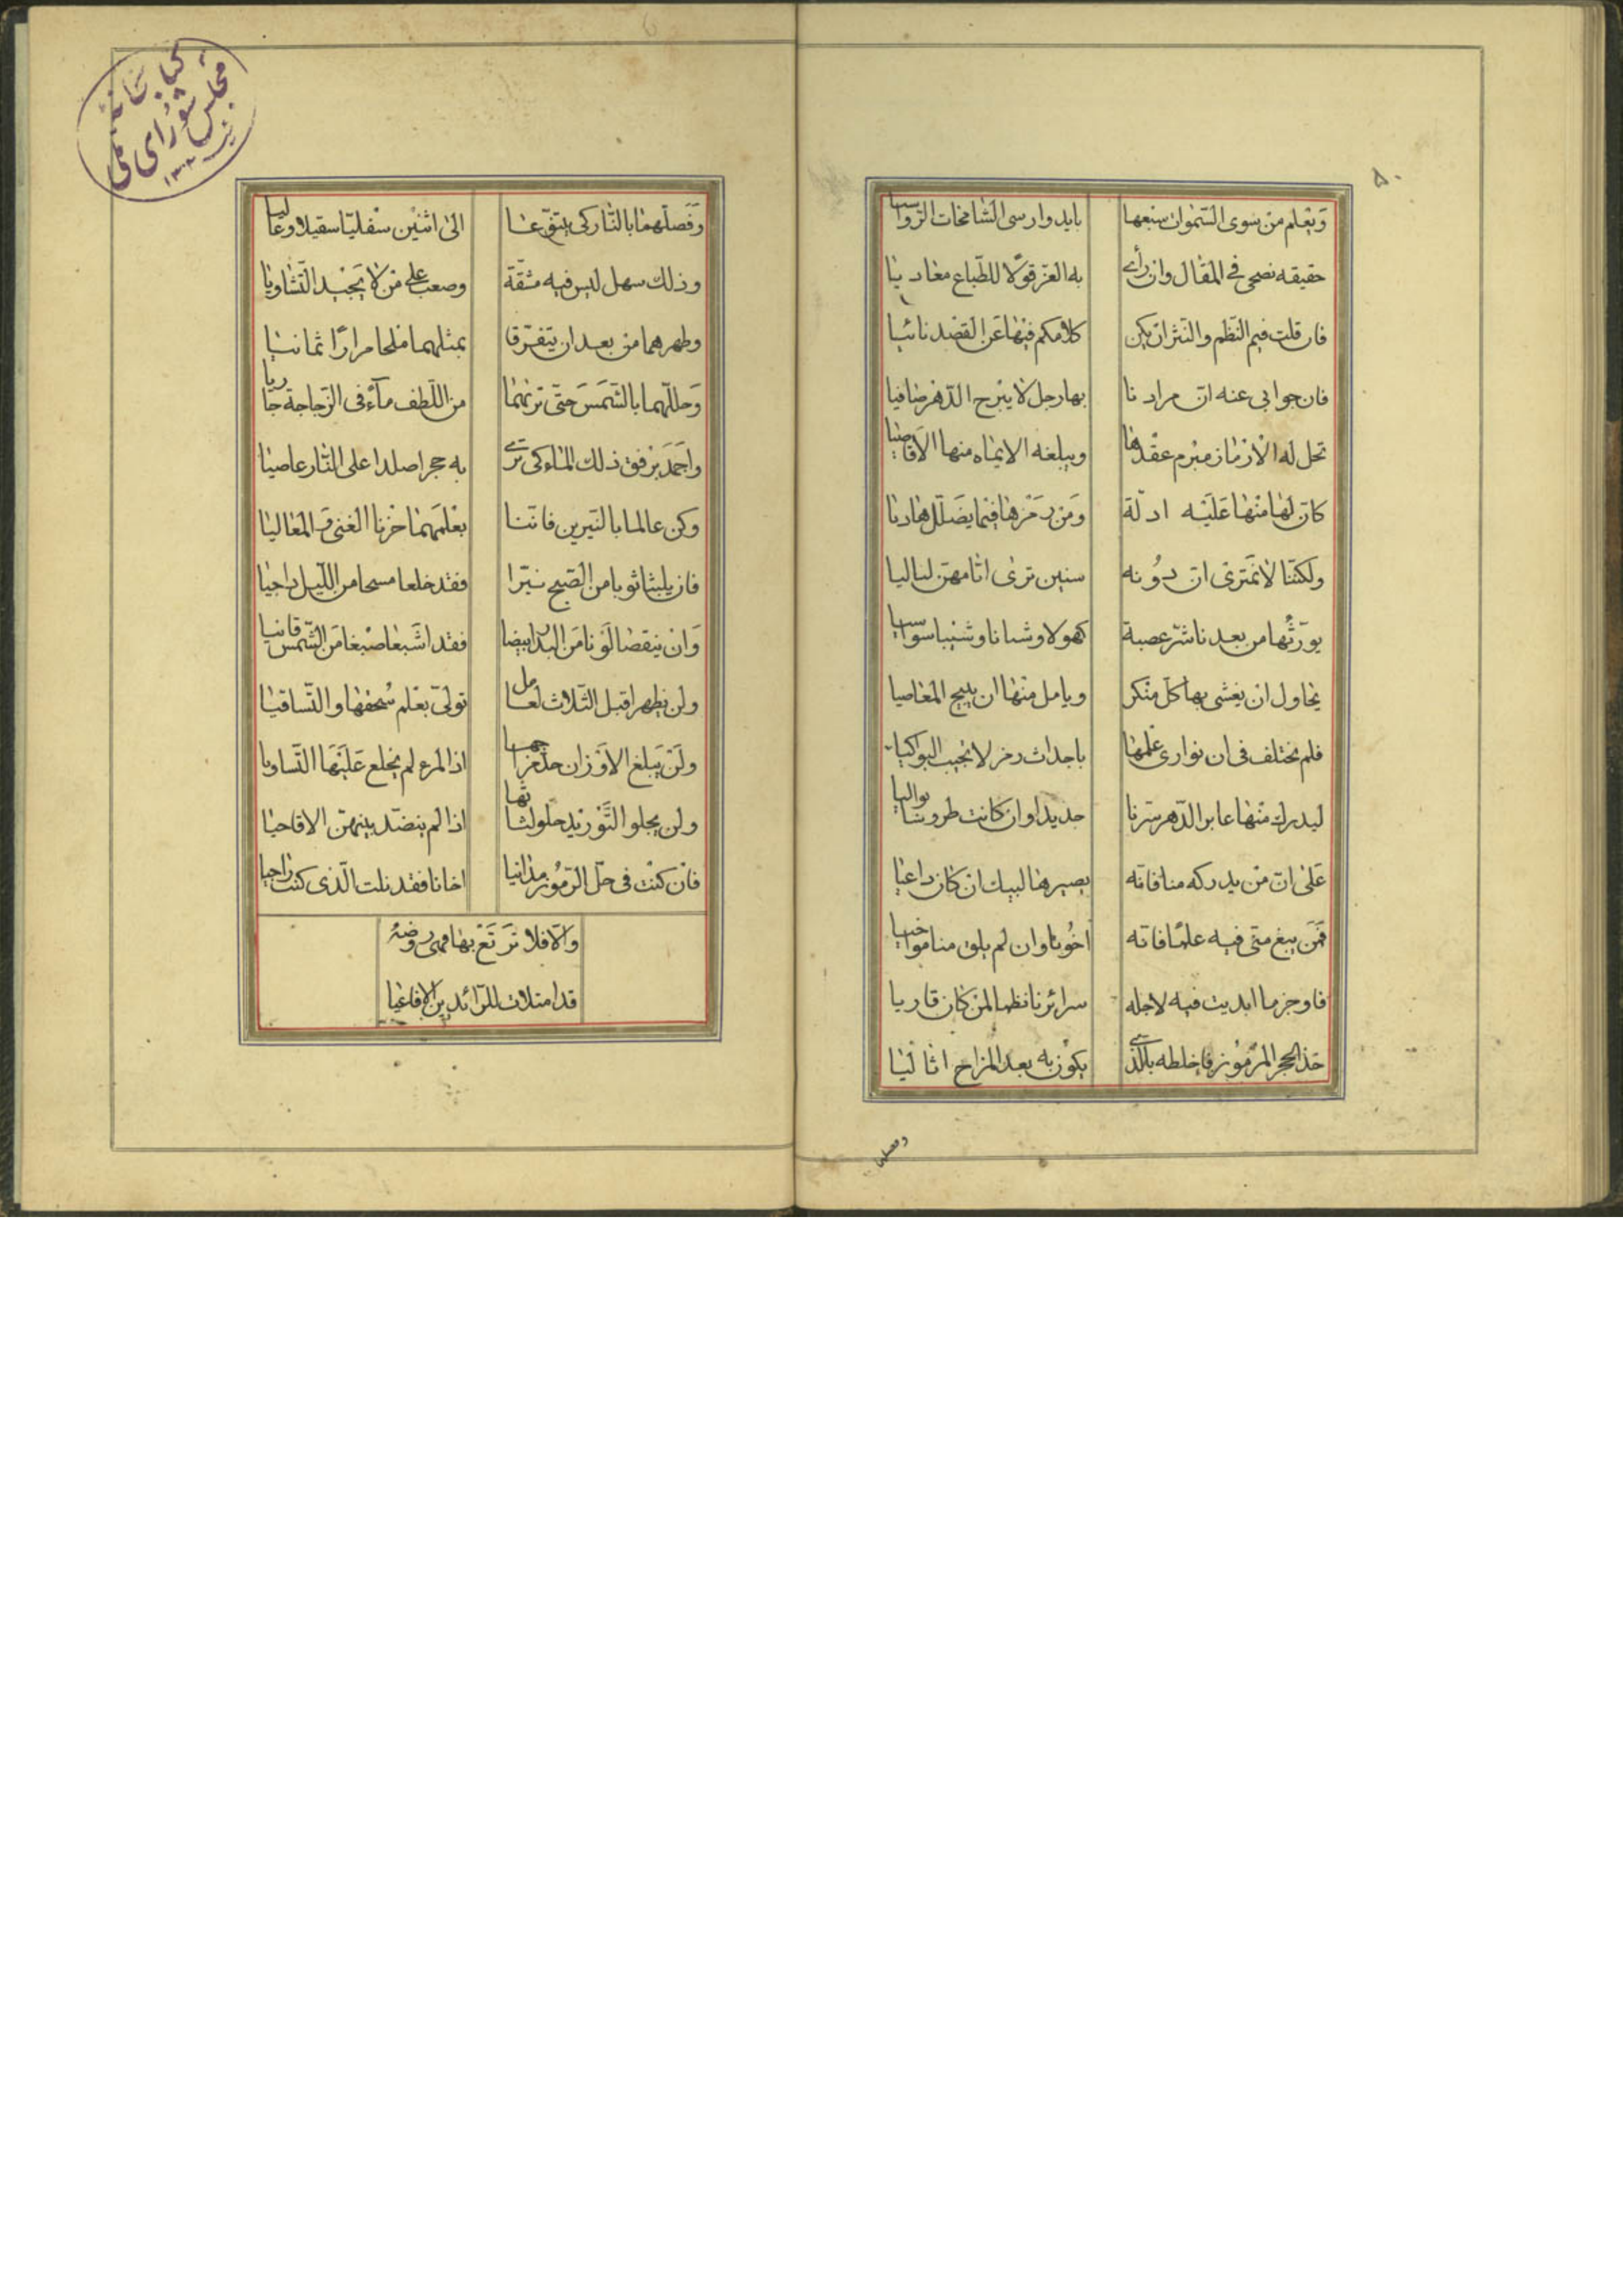 ۵۰
وَيعلم من سوى السّموات سبعها بايد وارسى الشامخات الرّواسيا
حقيقه نصحى فى المقال وان رأى به الغرّ قولا للطّباع معاديا
فان قلت فيم النّظم والنّثر ان يكن كلامكم فيها عن القصد نائيا
فان جوابى عنه انّ مرادنا بها رجل لا يبرح الدّهر ضافيا
تحل له الازمان مبرم عقدها ويبلغه الايماء منها الاقاصيا
كانّ لها منها عَلَيْه ادلّة ومن رمزها فيما يضلّل هاديا
ولكنّنا لا نمترى انّ دونه سنين ترى اثامهنّ لياليا
يورّثها من بعدنا شرّ عصبة كهولا وشبانا وشيبا سواسيا
يحاول ان يغشى بها كلّ منكر ويامل منها ان يبيح المعاصيا
فلم نختلف فى ان نوارى علمها باجداث رمز لا تجيب البواكيا
ليدرك منها عابر الدّهر سرّنا جديدا وان كانت طروسا بواليا
على انّ من يدركه منا فانّه بصيرها لبيك ان كان داعيا
فمن يبغ منّى فيه علمًا فانّه اخونا وان لم يلق منا مواخيا
فاوجز ما ابديت فيه لاجله سرائرنا نظما لمن كان قاريا
خذ الحجر المرموز فاخلطه بالّذى يكون به بعد المزاج اثاليا
وفصلهما
وفَصّلهما بالنّار كى يتفرّعا الى اثنين سفليّا سقيلا وعاليا
وذلك سهل ليس فيه مشقّة وصعب على من لا يجيد التّشاويا
وطهرهما من بعد ان يتفرّقا بمثلهما ملحا مرارًا ثمانيا
وحللّهما بالشّمس حتّى ترنهما من اللّطف مآء فى الزّجاجة جاريا
واجمد برفق ذلك الماء كى ترى به حجرا صلدا على النّار عاصيا
وكن عالما بالنّيرين فانّنا بعلمهما حزنا الغنى والمعاليا
فان يلبثا ثوبا من الصّبح نيّرا فقد خلعا مسحا من اللّيل داجيا
وان ينقصا لونا من البدر ابيضا فقد اشبعا صبغا من الشّمس قانيا
ولن يظهرا قبل الثّلاث لعامل تولّى بعلم سُحقها والتّساقيا
ولن يبلغ الاوزان جلّ مزاجها اذا المرء لم يخلع عليها التّساويا
ولن يجلو التّوريد حلو لثاتها اذا لم ينضّد بينهنّ الاقاحيا
فان كنت فى حلّ الرّموز مدانيا اخانا فقد نلت الّذى كنت راجيا
والّا فلا تَرتَعْ بها فهى روضة
قد امتلات للرّائدين الافاعيا
كتابخانه
مجلس شوراى ملى